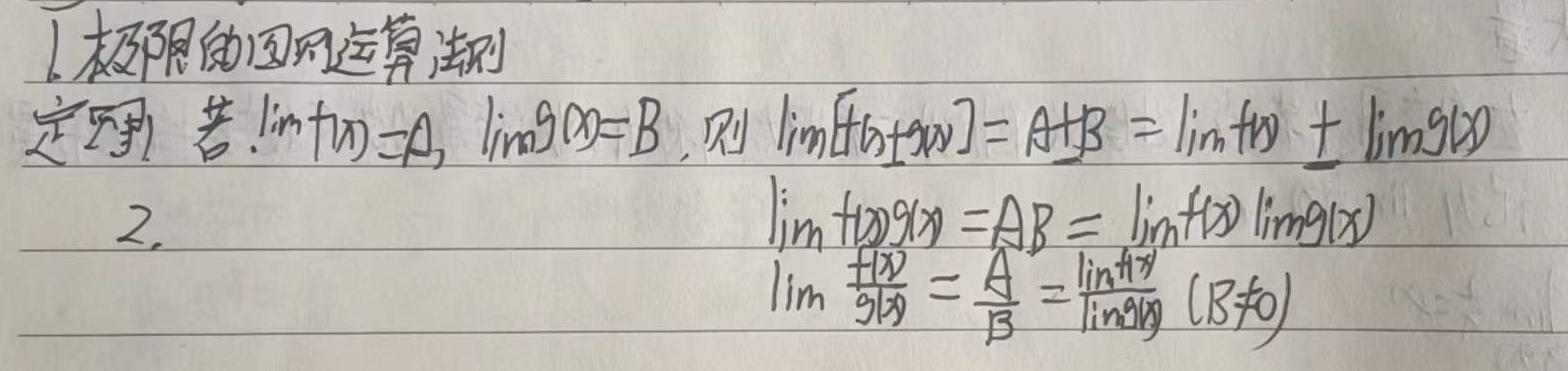 1. 极限的四则运算法则
定理1 若 lim f(x)=A, lim g(x)=B, 则 lim[f(x)±g(x)]=A±B=lim f(x) ± lim g(x)
2. lim f(x)g(x)=AB=lim f(x) lim g(x)
lim \frac{f(x)}{g(x)} = \frac{A}{B} = \frac{lim f(x)}{lim g(x)} (B≠0)